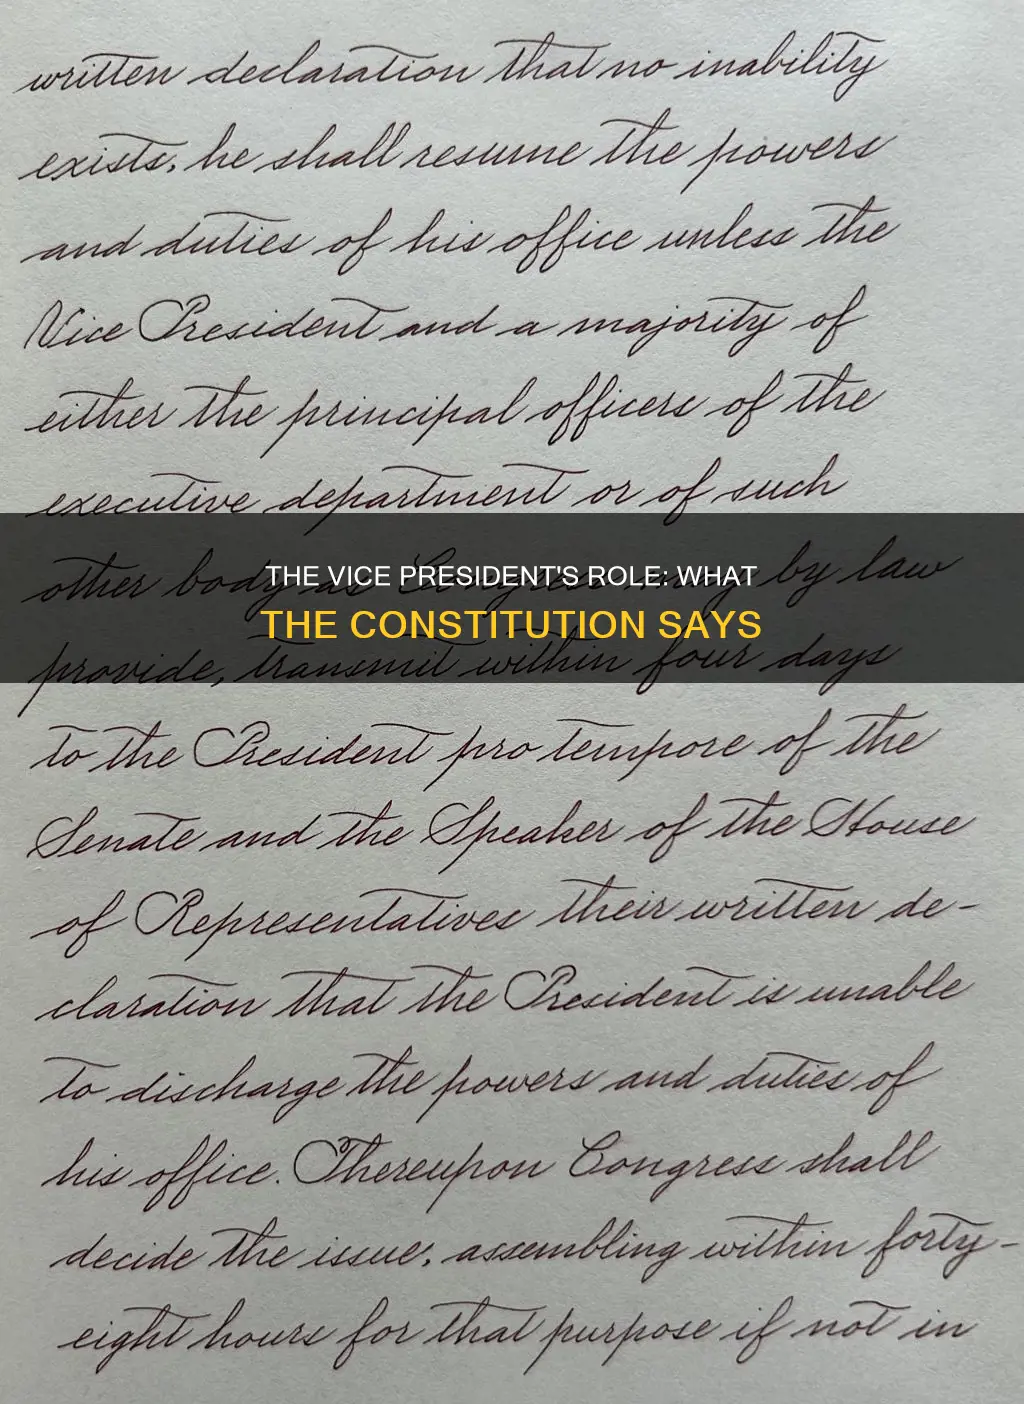 written declaration that no inability
exists, he shall resume the powers
and duties of his office unless the
Vice President and a majority of
either the principal officers of the
executive department or of such
other body as Congress may by law
THE VICE PRESIDENT'S ROLE: WHAT
THE CONSTITUTION SAYS
provide, transmit within four days
to the President pro tempore of the
Senate and the Speaker of the House
of Representatives their written de-
claration that the President is unable
to discharge the powers and duties of
his office. Thereupon Congress shall
decide the issue, assembling within forty-
eight hours for that purpose if not in